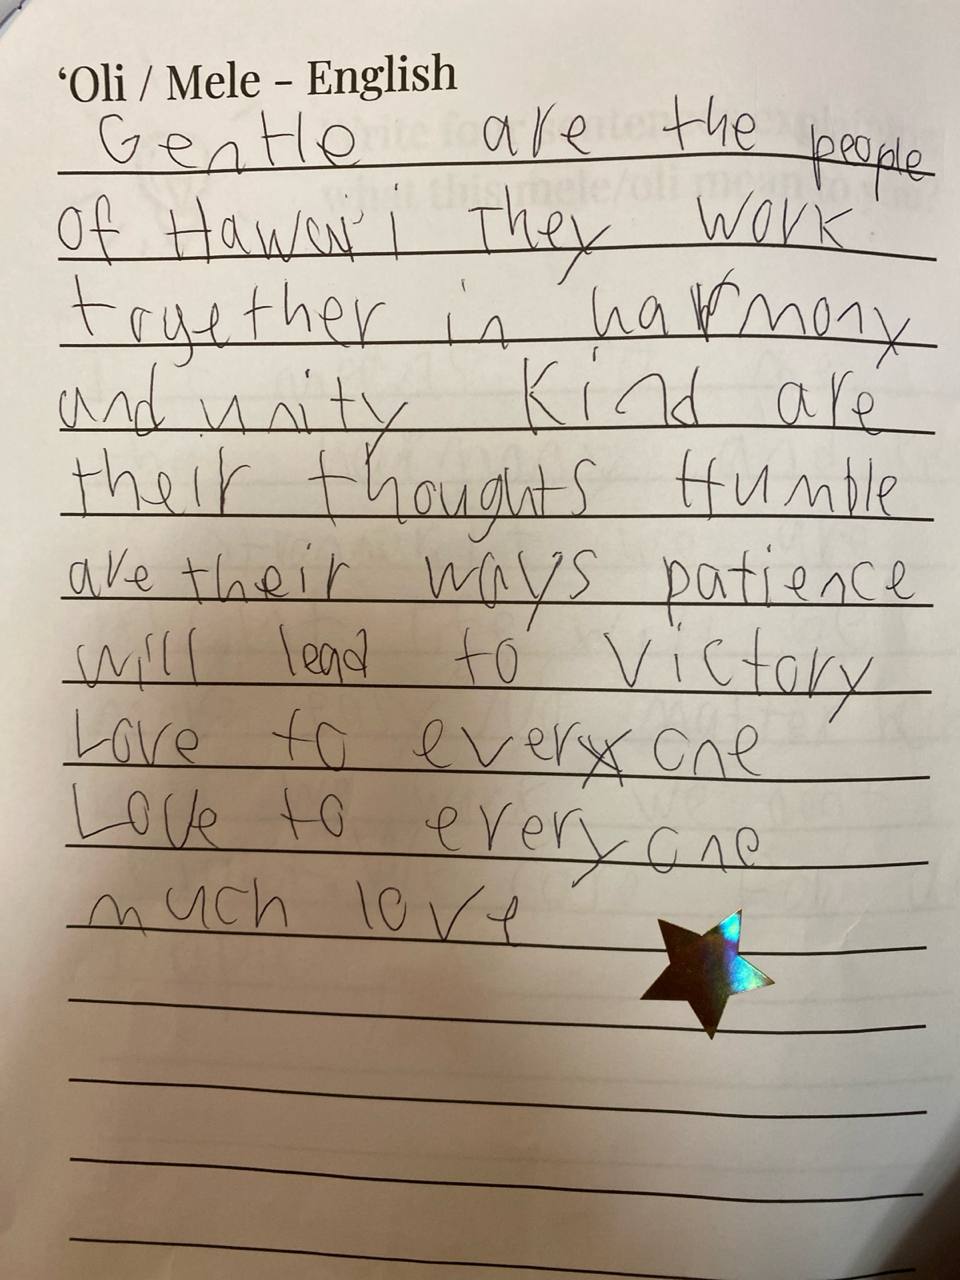 ‘Oli / Mele – English
Gentle are the people
of Hawai'i They work
together in harmony
and unity Kind are
their thoughts Humble
are their ways patience
will lead to victory
Love to everyone
Love to everyone
much love